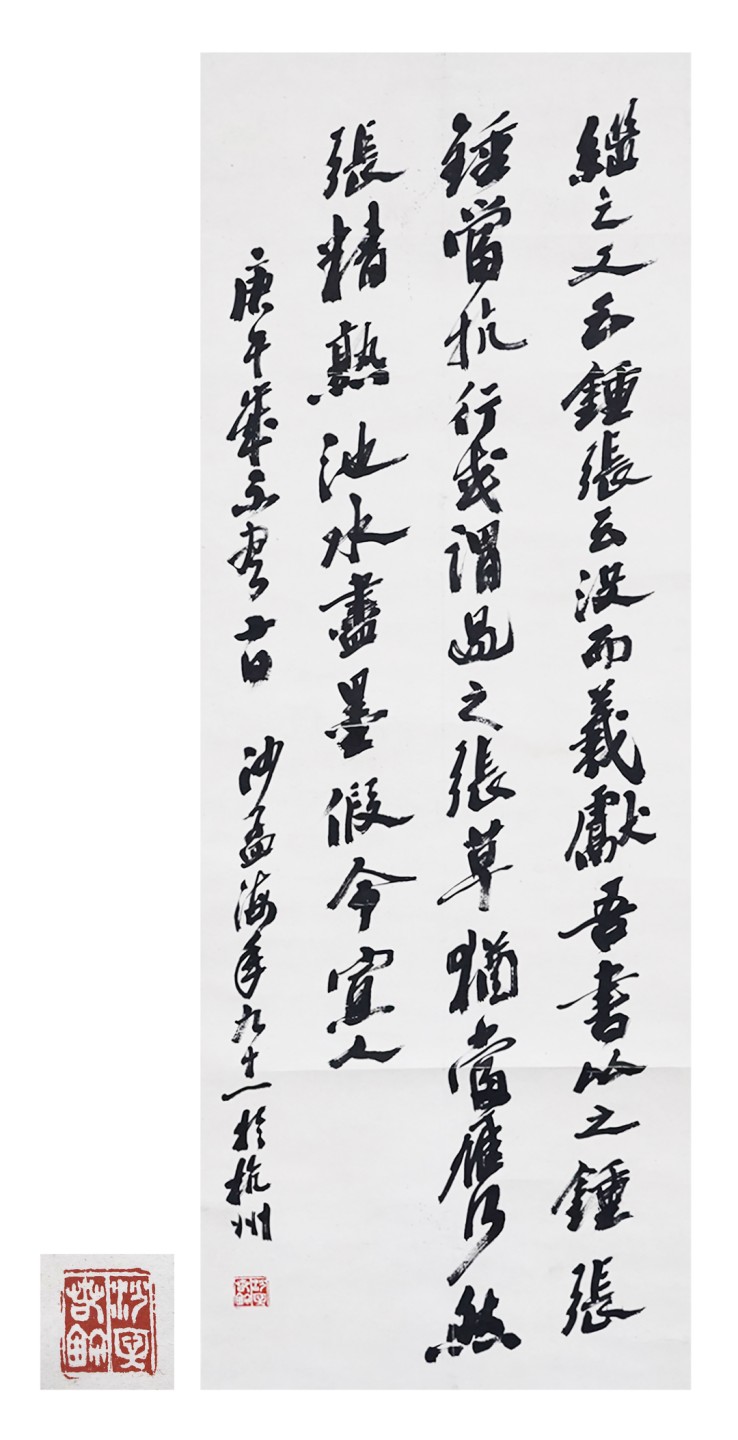 繼之又云鍾張云沒而羲獻吾書比之鍾張
鍾當抗行或謂過之張草猶當雁行然
張精熟池水盡墨假令寡人
庚午歲不盡十日 沙孟海年九十一於杭州